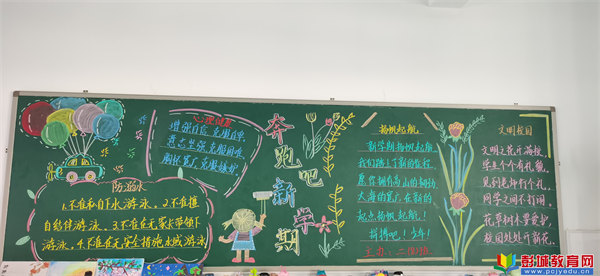 防溺水
1.不在私自下水游泳。2.不在擅
自结伴游泳。3.不在在无家长带领下
游泳。4.不在在无安全措施水域游泳
心理健康
增强自信 克服自卑
意志坚强 克服困难
胸怀宽广 克服嫉妒
奔跑吧
新学期
扬帆起航
新学期扬帆起航
我们踏上了新的征程
愿你拥有高山的胸怀
大海的宽广 在新的
起点扬帆起航！
拼搏吧！少年！
文明校园
文明之花开满校
学生个个有礼貌
见到老师行个礼
同学之间不打闹
花草树木要爱护
校园处处开新花
彭城教育网
www.pcjyedu.cn